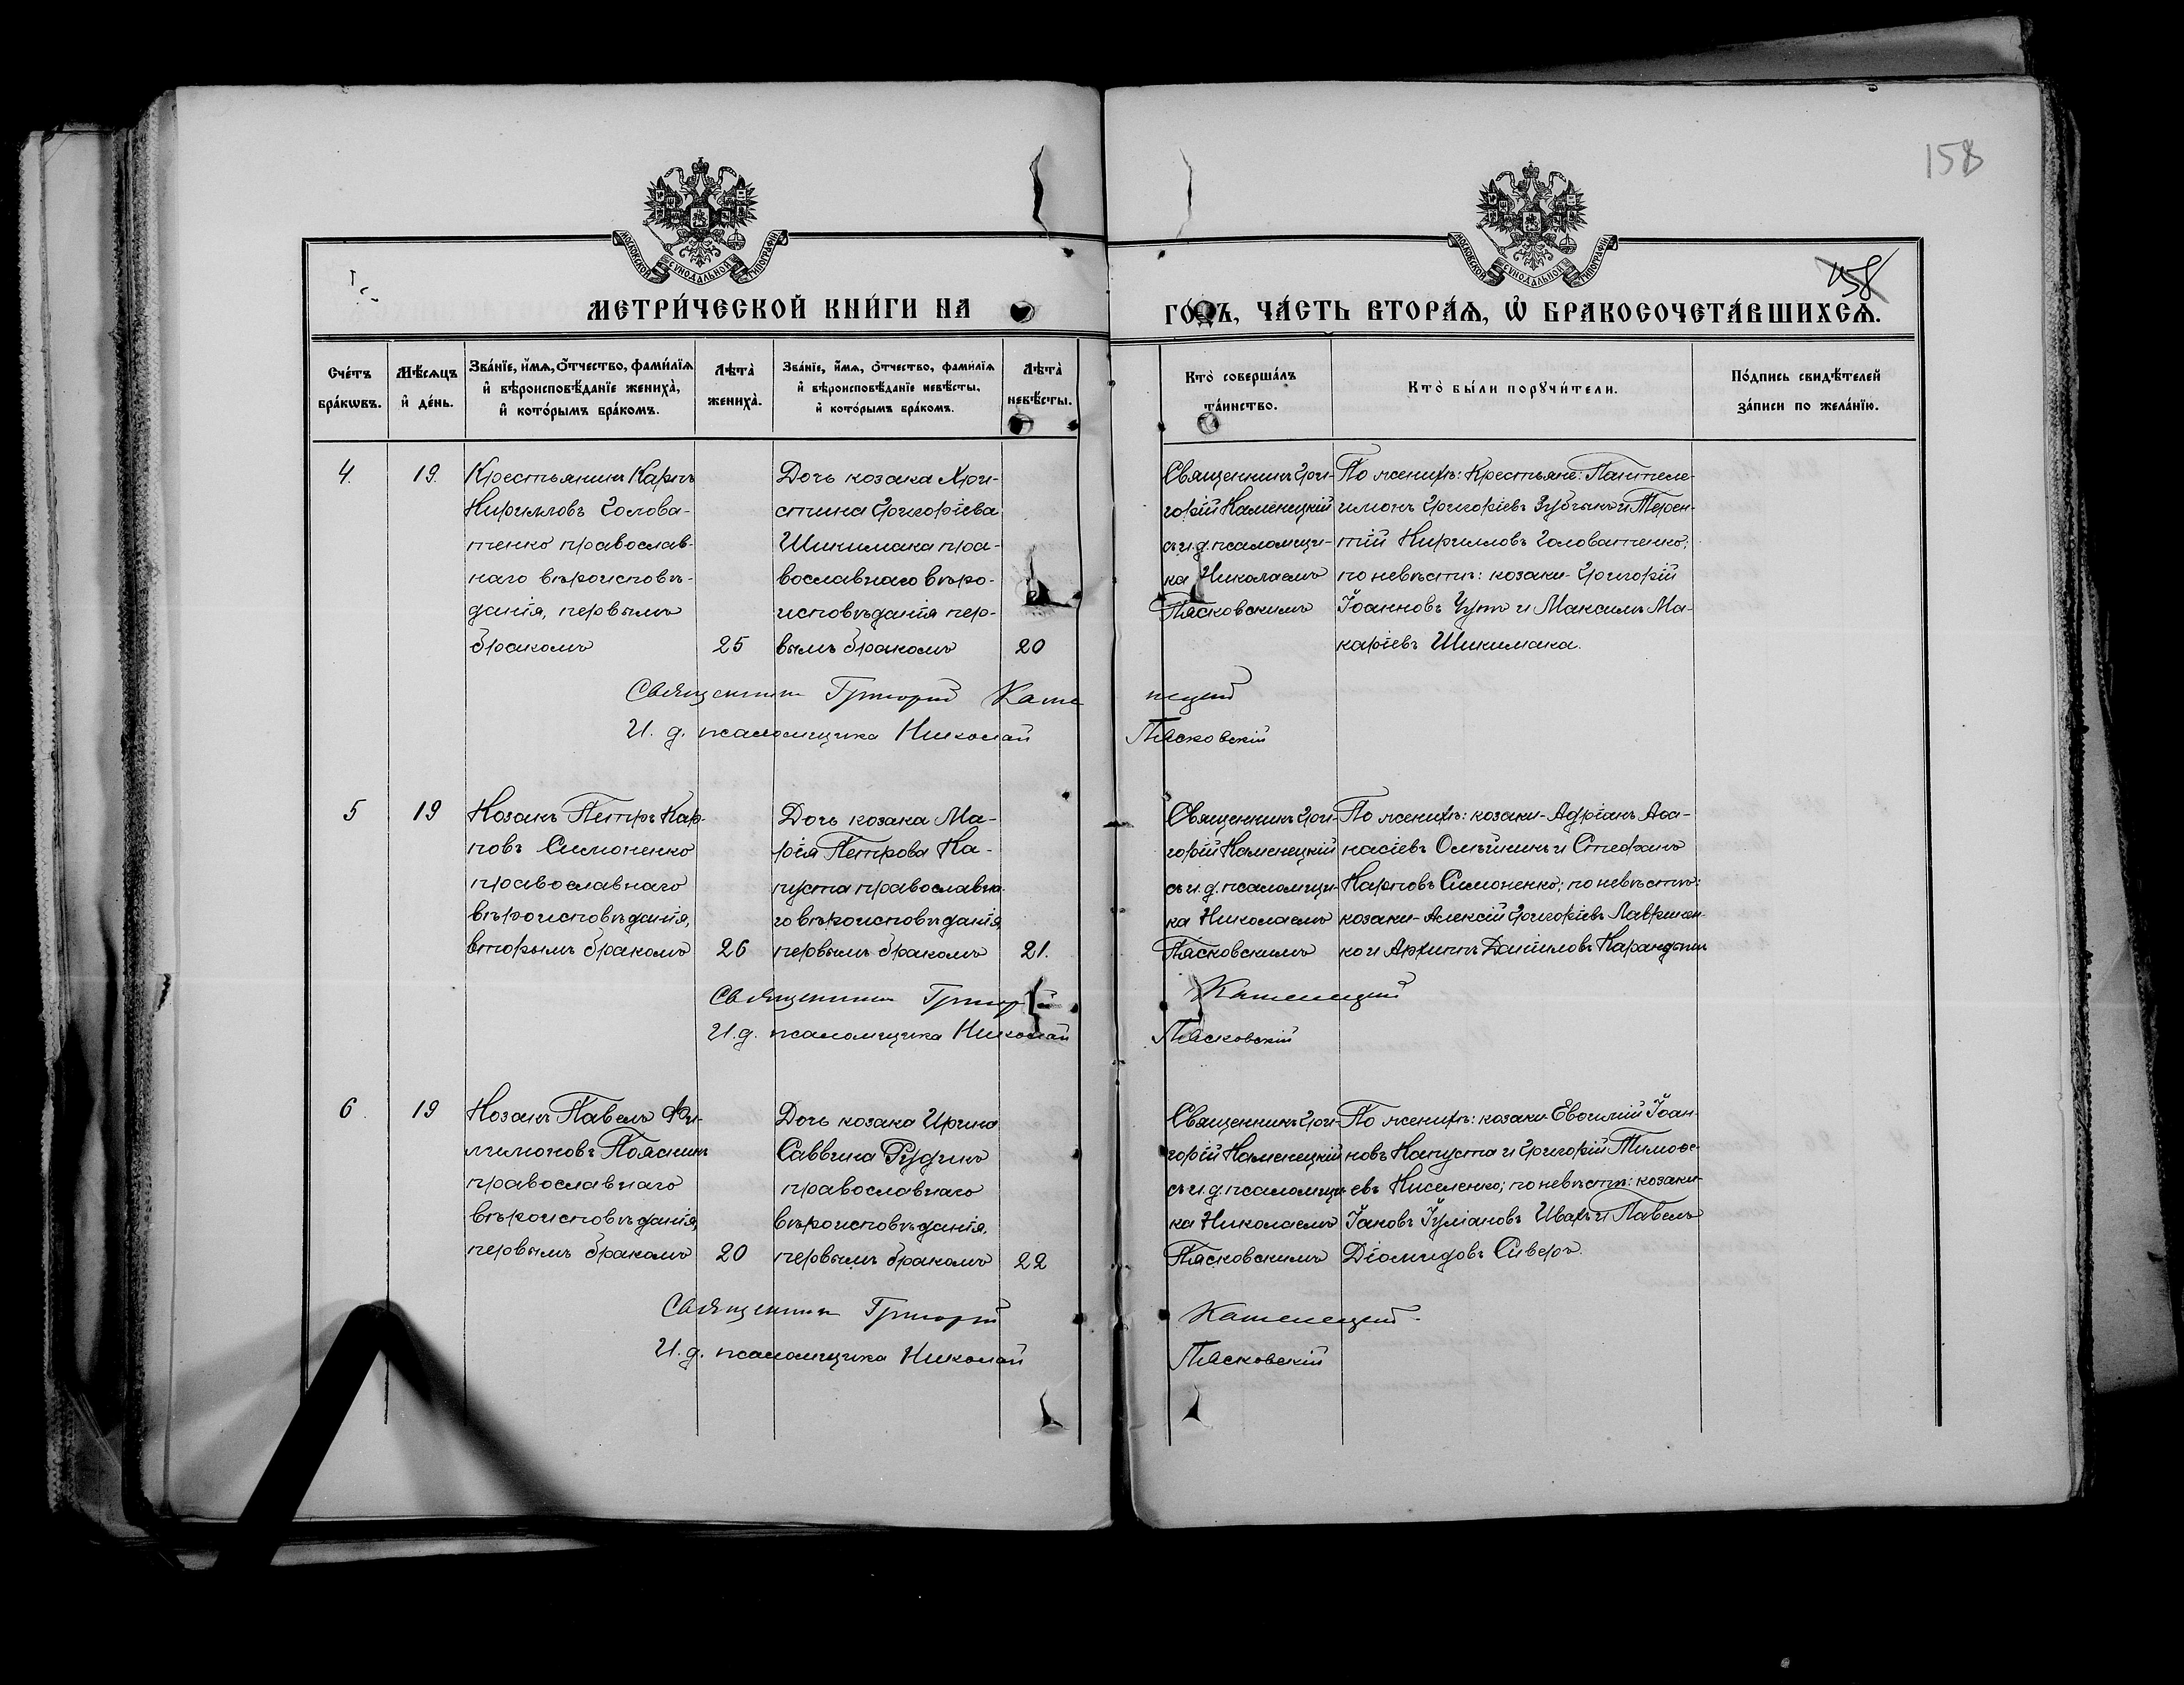 158
158
МОСКОВСКОЙ СѴНОДАЛЬНОЙ ТИПОГРАФІИ
МОСКОВСКОЙ СѴНОДАЛЬНОЙ ТИПОГРАФІИ
МЕТРИ́ЧЕСКОЙ КНИ́ГИ НА ГО́ДЪ, ЧА́СТЬ ВТОРА́Ѧ, Ѡ҆ БРАКОСОЧЕТА́ВШИХСѦ.
Сче́тъ
бра́кѡвъ.
Мѣ́сѧцъ
и҆ де́нь.
Зва́нїе, и҆́мѧ, ѻ҆́тчество, фами́лїѧ
и҆ вѣроисповѣ́данїе жениха̀,
и҆ кото́рымъ бра́комъ.
Лѣ̀та
жениха̀.
Зва́нїе, и҆́мѧ, ѻ҆́тчество, фами́лїѧ
и҆ вѣроисповѣ́данїе невѣ́сты,
и҆ кото́рымъ бра́комъ.
Лѣ̀та
невѣ́сты.
Кто̀ соверша́лъ
та́инство.
Кто̀ бы́ли порꙋчи́тели.
По́дпись свидѣ́телей
за́писи по жела́нїю.
4.
19.
Крестьянинъ Карпъ
Кирилловъ Голова-
тенко православ-
наго вѣроисповѣ-
данія, первымъ
бракомъ
25
Дочь козака Хри-
стина Григоріева
Шикимака пра-
вославнаго вѣро-
исповѣданія пер-
вымъ бракомъ
20
Священникъ Гри-
горій Каменецкій
съ и.д. псаломщи-
ка Николаемъ
Пясковскимъ
По женихѣ: Крестьяне: Пантеле-
имонъ Григоріевъ Зубчикъ и Терен-
тій Кирилловъ Головатенко;
по невѣстѣ: козаки- Григорій
Іоанновъ Чупъ и Максимъ Ма-
каріевъ Шикимака.
Священникъ Григорій Каменецкій
И. д. псаломщика Николай Пясковскій
5
19
Козакъ Петръ Кар-
повъ Симоненко
православнаго
вѣроисповѣданія,
вторымъ бракомъ
26
Дочь козака Ма-
рія Петрова Ка-
пуста православна-
го вѣроисповѣданія
первымъ бракомъ
21.
Священникъ Гри-
горій Каменецкій
съ и.д. псаломщи-
ка Николаемъ
Пясковскимъ
По женихѣ: козаки- Адріанъ Аѳа-
насіевъ и Стефанъ
Карповъ Симоненко; по невѣстѣ:
козаки- Алексій Григоріевъ Лавринен-
ко и Архиппъ Даніиловъ
Священникъ Григорій Каменецкій
И. д. псаломщика Николай Пясковскій
6.
19
Козакъ Павелъ Фи-
лимоновъ Поясникъ
православнаго
вѣроисповѣданія,
первымъ бракомъ
20
Дочь козака Ирина
Саввина Рудикъ
православнаго
вѣроисповѣданія,
первымъ бракомъ
22
Священникъ Гри-
горій Каменецкій
съ и.д. псаломщи-
ка Николаемъ
Пясковскимъ
По женихѣ: козаки- Евѳимій Іоан-
новъ Капуста и Григорій Тимоѳе-
евъ Киселенко; по невѣстѣ: козаки-
Іаковъ Іуліановъ Ивахъ и Павелъ
Діомидовъ Сиверъ.
Священникъ Григорій Каменецкій.
И. д. псаломщика Николай Пясковскій